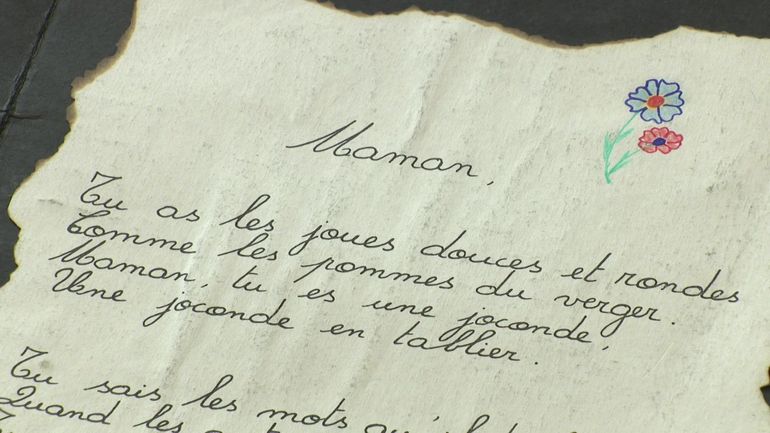 Maman,
Tu as les joues douces et rondes
Comme les pommes du verger.
Maman, tu es une joconde,
Une joconde en tablier.
Tu sais les mots qu'
Quand les